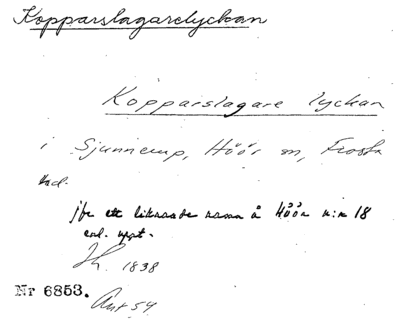 Kopparslagarelyckan
Kopparslagare lyckan
i Sjunnerup, Höör sn, Frosta
hd.
jfr ett liknande namn å Höör n:r 18
enl. uppt.
1838
Nr 6853. Ant 54